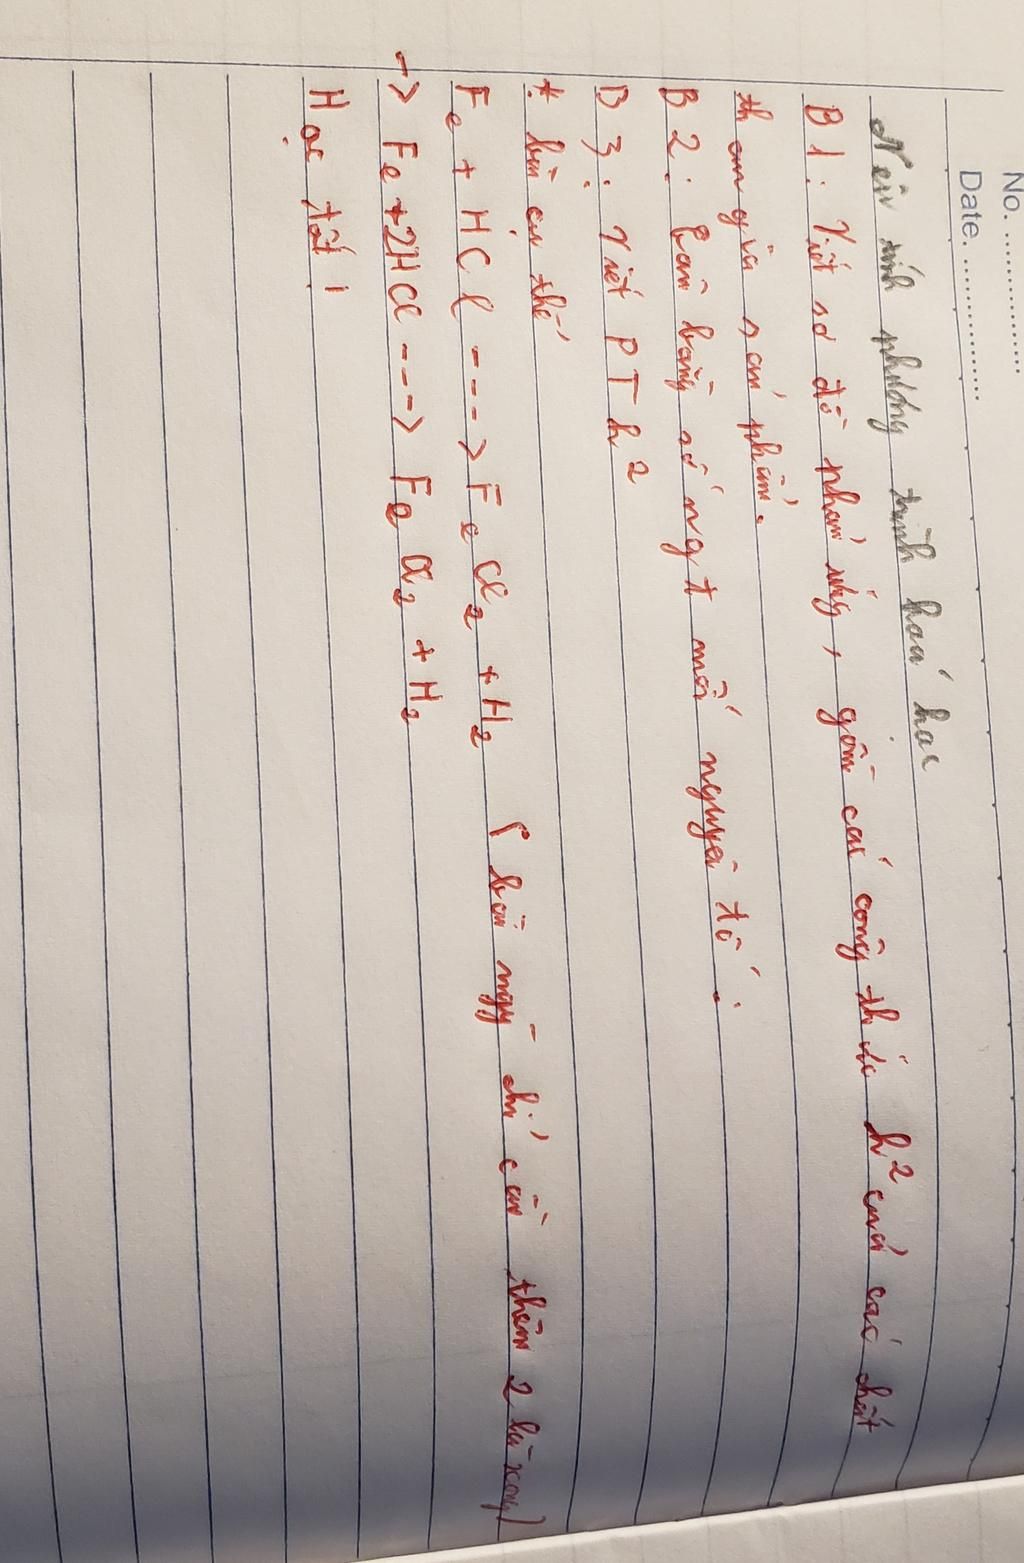 No. ..............
Date. ..................
Nêu cách phương trình hoá học
B1: Viết sơ đồ phản ứng, gồm các công thức h² của các chất
tham gia sản phẩm.
B2: Cân bằng số ngt mỗi nguyên tố.
B3: Viết PTh²
* bài cụ thể
Fe + HCl ---> FeCl₂ + H₂ ( bài này chỉ cần thêm 2 là xong)
-> Fe + 2HCl ---> FeCl₂ + H₂
Học tốt !